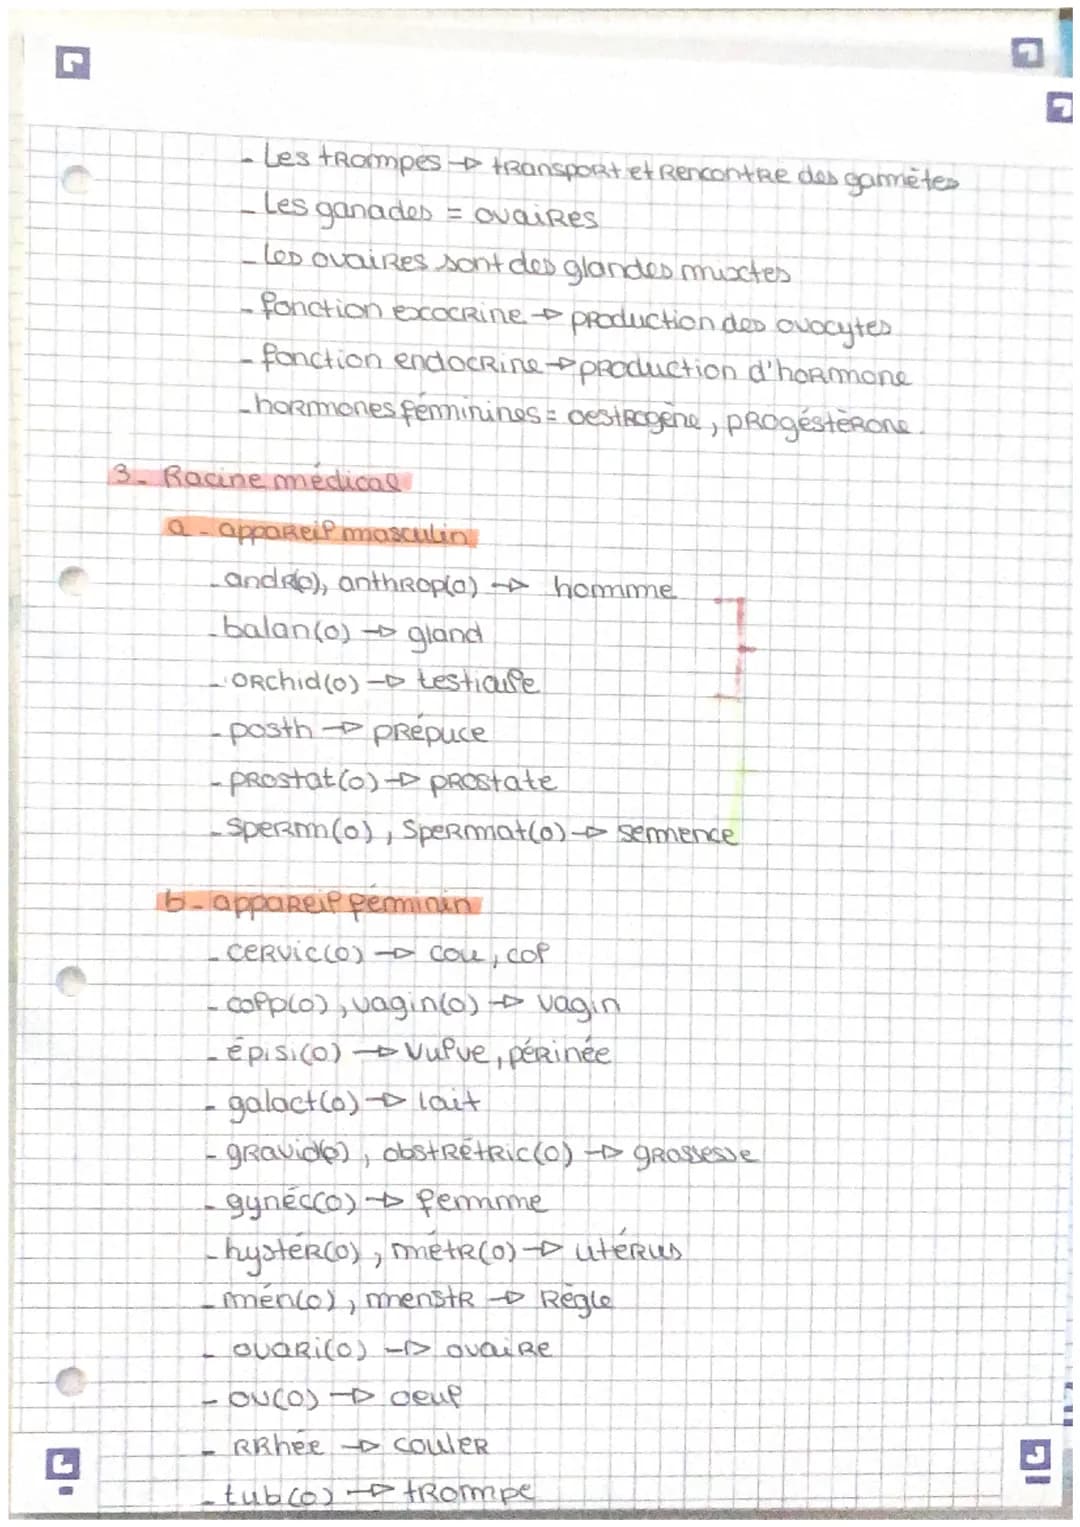 - Les trompes → transport et rencontre des gamètes
- Les ganades = ovaires
- Les ovaires sont des glandes mixctes
- fonction excocrine → production des ovocytes
- fonction endocrine → production d'hormone
- hormones féminines = oestrogène, progéstèrone.
3 - Racine médical
a - appareil masculin
- andr(o), anthrop(o) → homme
- balan(o) → gland
- orchid(o) → testicule
- posth → prépuce
- prostat(o) → prostate
- sperm(o), Spermat(o) → semence
b - appareil féminin
- cervic(o) → cou, col
- colp(o), vagin(o) → vagin
- épisi(o) → vulve, périnée
- galact(o) → lait
- gravid(o), obstrétric(o) → grossesse
- gynéc(o) → femme
- hystér(o), métr(o) → utérus
- mén(o), menstr → Règle
- ovari(o) → ovaire
- ov(o) → oeuf
- rrhée → couler
- tub(o) → trompe